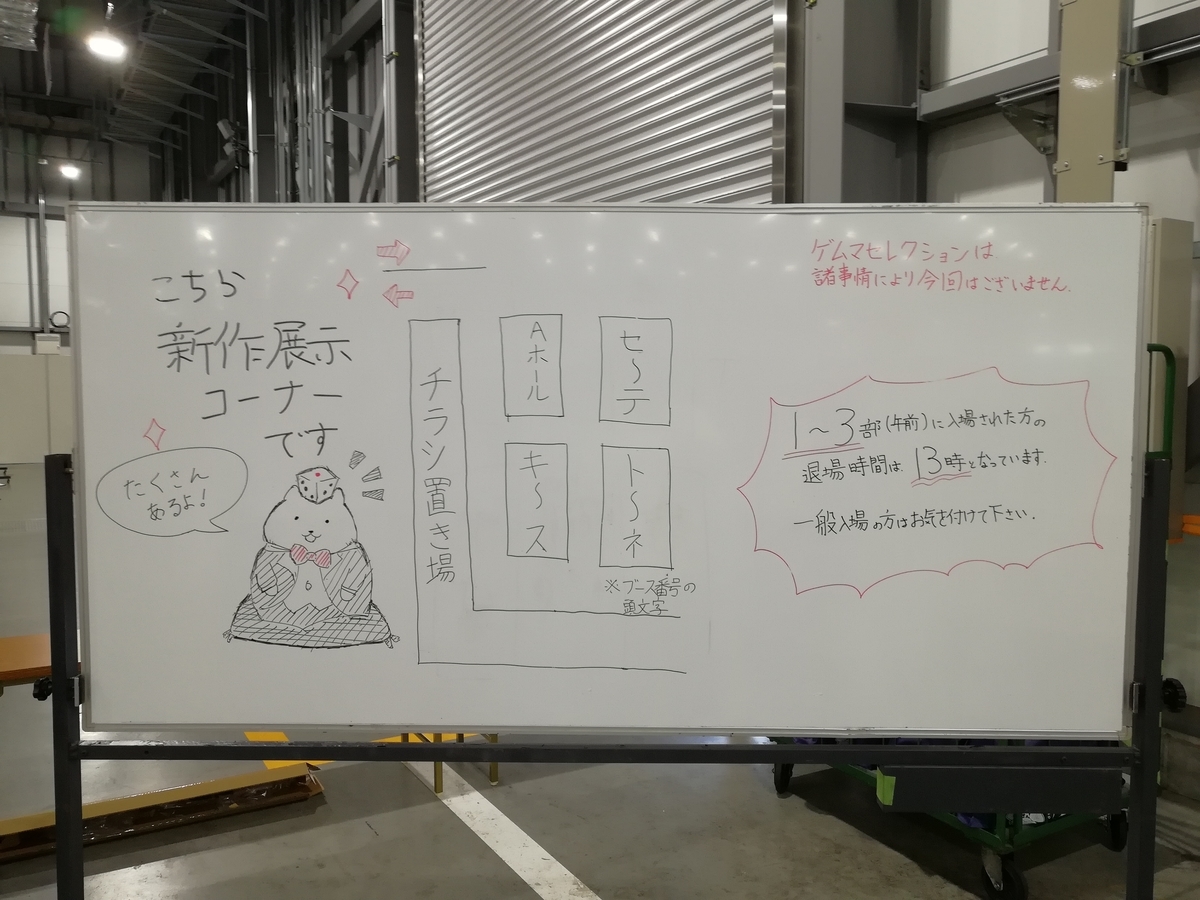 こちら
新作展示
コーナー
です
たくさん
あるよ!
チラシ置き場
Aホール
セ〜テ
キ〜ス
ト〜ネ
※ブース番号の
頭文字
ゲムマセレクションは
諸事情により今回はございません.
1〜3部(午前)に入場された方の
退場時間は13時となっています.
一般入場の方はお気を付けて下さい.